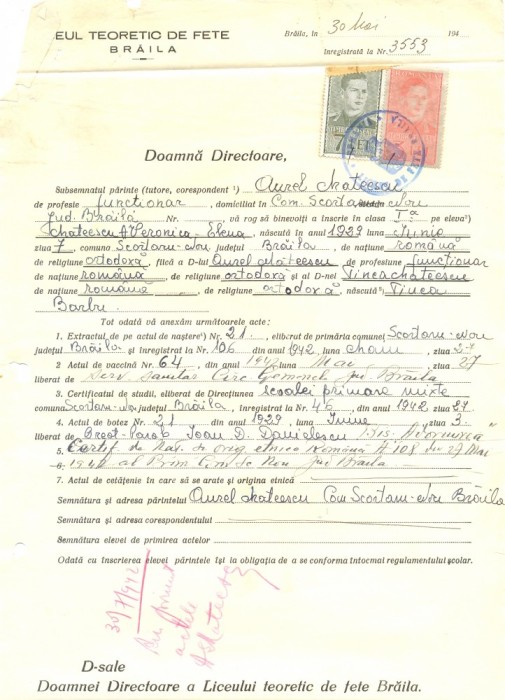 EUL TEORETIC DE FETE
BRĂILA
Brăila, in 30 Mai 194
înregistrată la Nr. 3553
7 LEI
Doamnă Directoare,
Subsemnatul părinte (tutore, corespondent ¹) Aurel Mateescu
de profesie funcționar, domiciliat în Com. Scorțaru-Nou
Jud. Brăila Nr. vă rog să binevoiți a înscrie în clasa I-a pe eleva²)
Mateescu A. Veronica-Elena, născută în anul 1929 luna Iunie
ziua 7, comuna Scorțaru-Nou județul Brăila de națiune română
de religiune ortodoxă, fiică a D-lui Aurel Mateescu de profesiune funcționar
de națiune română, de religiune ortodoxă și al D-nei Tinca Mateescu
de națiune română, de religiune ortodoxă, născută ³) Tinca
Barbu
Tot odată vă anexăm următoarele acte:
1. Extractul de pe actul de naștere⁴) Nr. 21, eliberat de primăria comunei Scorțaru-Nou
județul Brăila și înregistrat la Nr. 106 din anul 1942, luna Mai ziua 27
2 Actul de vaccină Nr. 64, din anul 1942 luna Mai ziua 27
liberat de Serv. Sanitar Circ. Jud. Brăila
3. Certificatul de studii, eliberat de Direcțiunea școalei primare mixte
comuna Scorțaru-Nou județul Brăila, înregistrat la Nr. 46 din anul 1942 ziua 27
4. Actul de botez Nr. 21 din anul 1929, luna Iunie, ziua 3
liberat de Preot-Paroh Ioan D. Danielescu Bis. Adormirea"
5. Certif. de Naț. de orig. etnică Română N 108 din 27 Mai
6. 1942 al Prim. Com. Jud. Brăila
7. Actul de cetățenie în care să se arate și origina etnică
Semnătura și adresa părintelui Aurel Mateescu Com. Scorțaru-Nou Brăila
Semnătura și adresa corespondentului
Semnătura elevei de primirea actelor
Odată cu înscrierea elevei părintele își ia obligația de a se conforma întocmai regulamentului școlar.
Am primit
actele
AMateescu
D-sale
Doamnei Directoare a Liceului teoretic de fete Brăila.